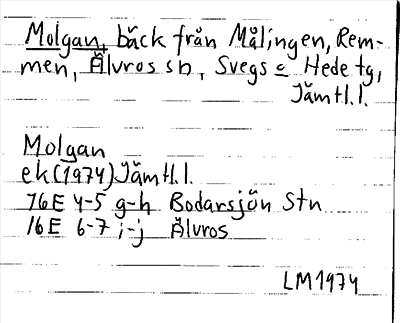 Molgan, bäck från Målingen, Rem-
men, Älvros sn, Svegs o Hede tg,
Jämtl.l.
Molgan
ek (1974) Jämtl.l.
16E 4-5 g-h Bodarsjön Stn
16E 6-7 i-j Älvros
LM 1974